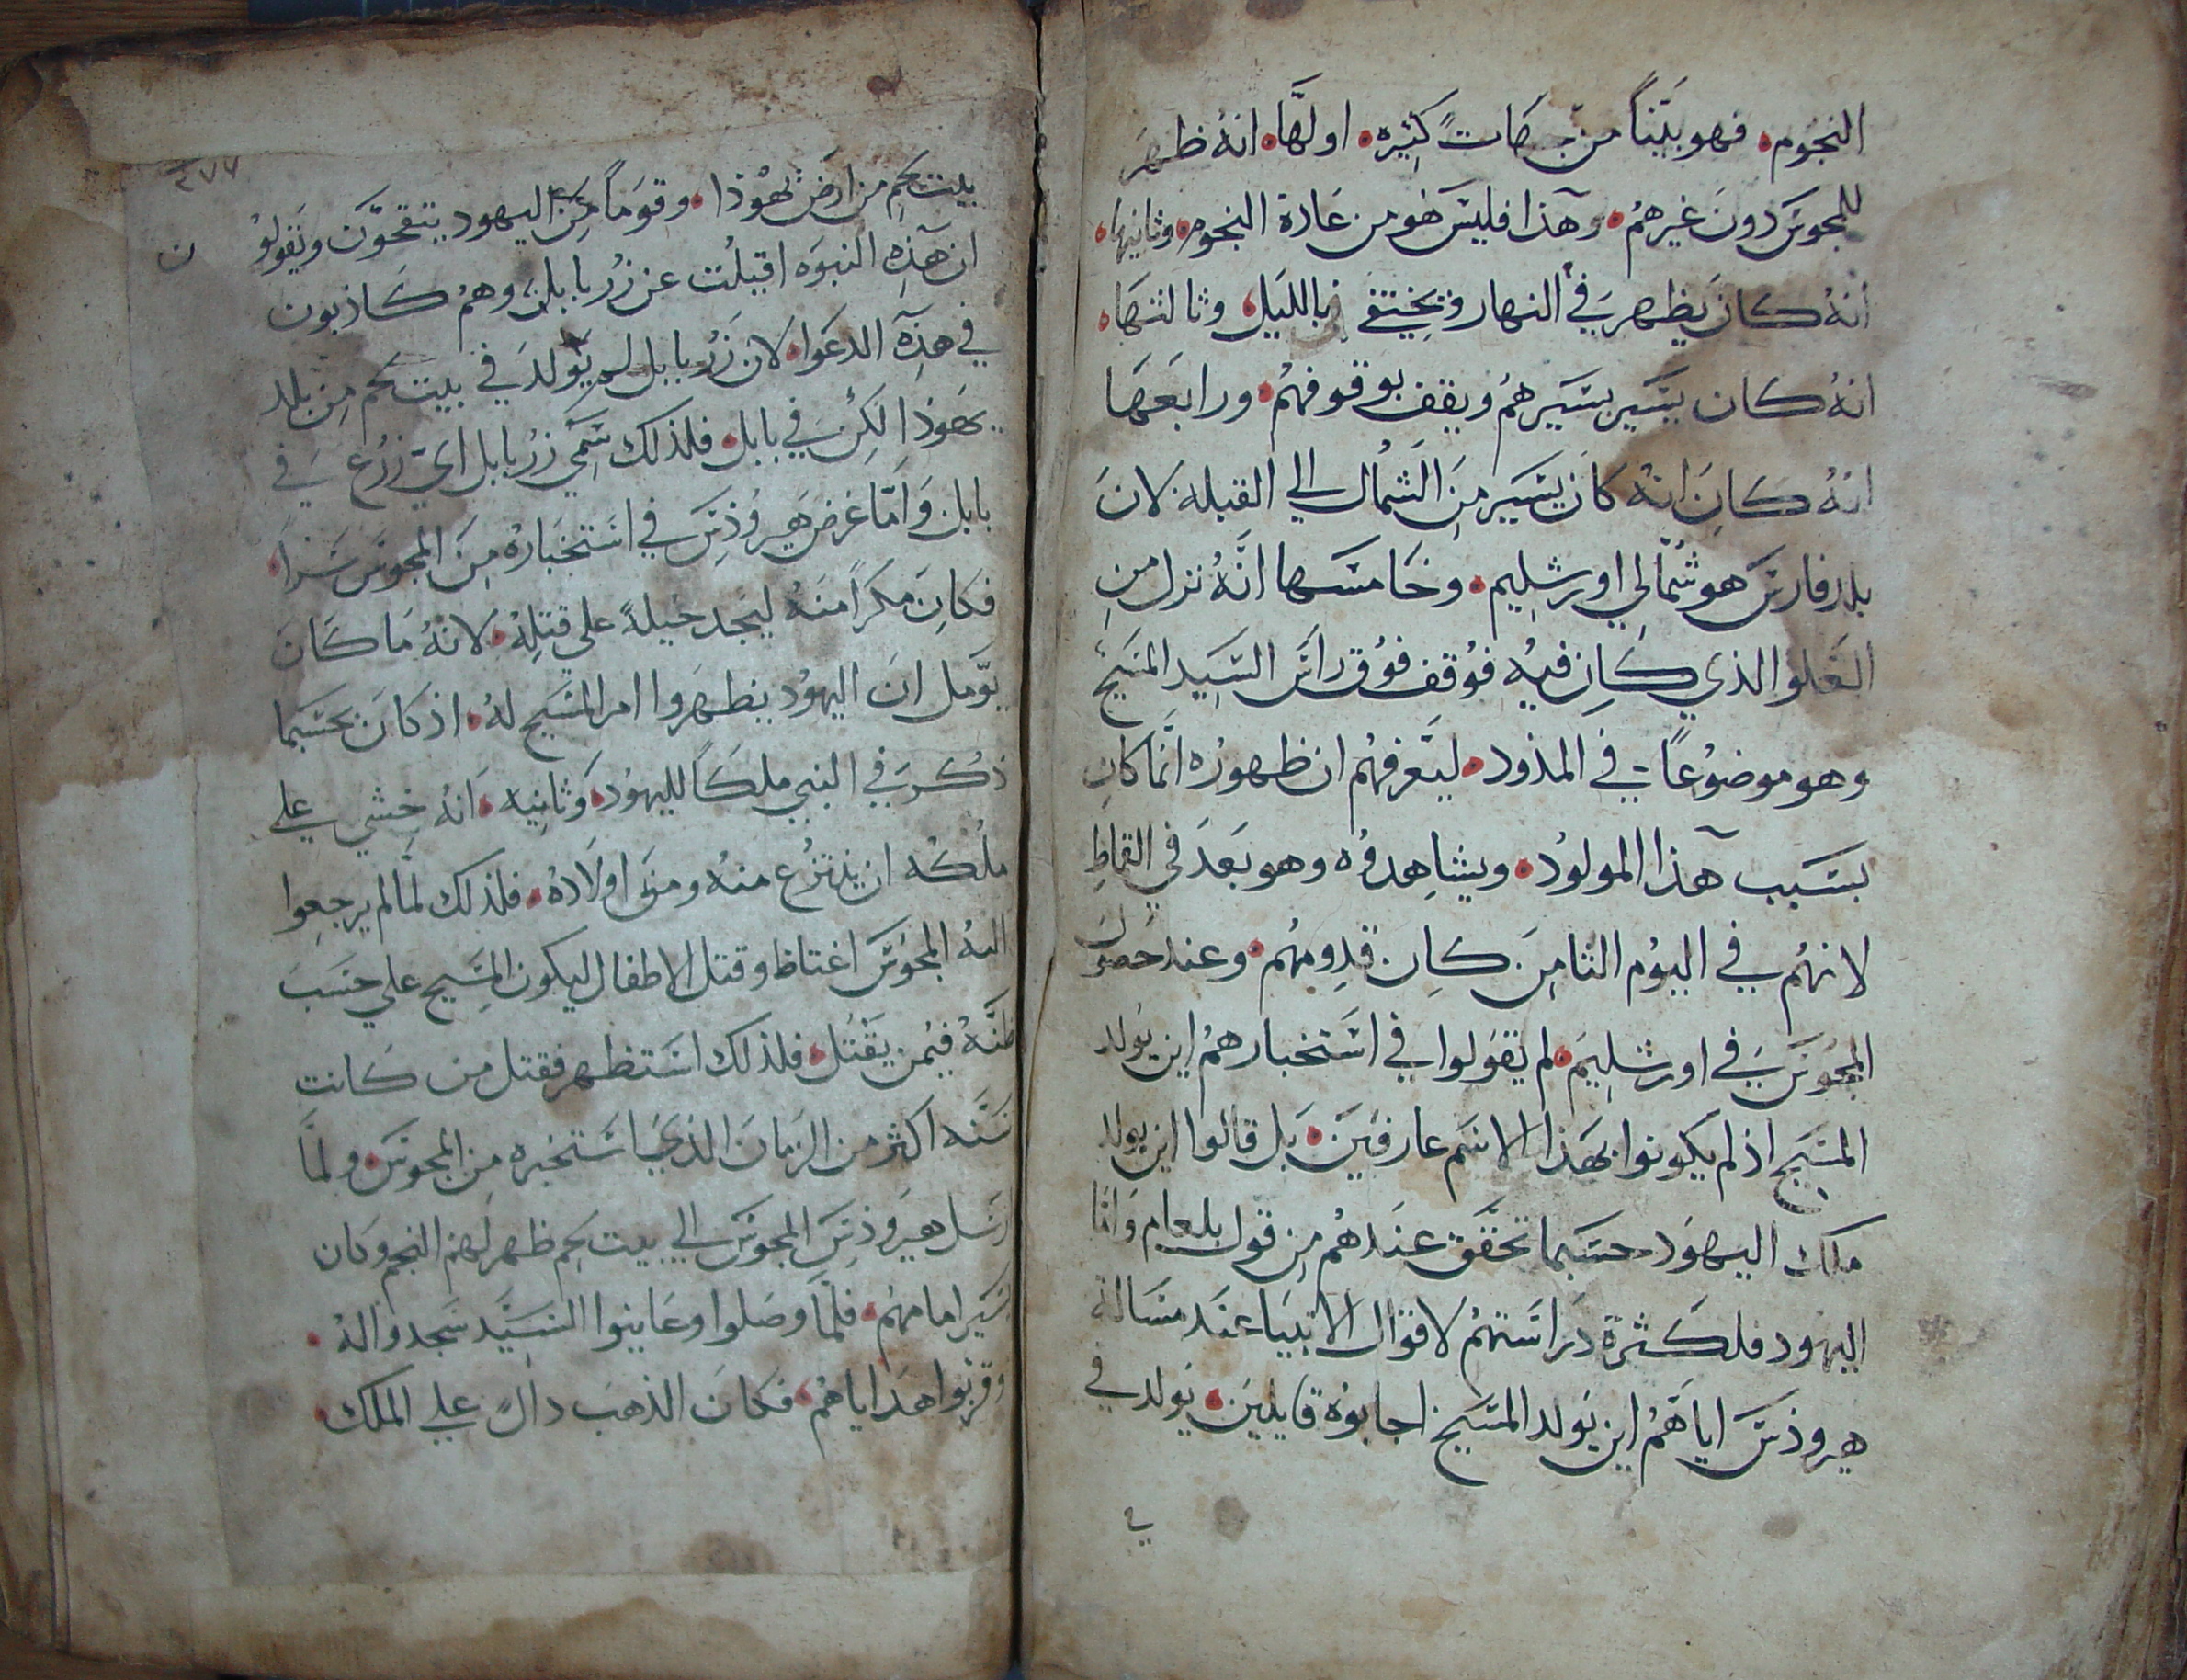 النجوم. فهو بيّناً من جهات كثيره. اولها. انهُ ظهر
للمجوس دون غيرهم. وهذا فليس هو من عادة النجوم. وثانيها.
انهُ كان يظهر في النهار ويختفي بالليل. وثالثها.
انهُ كان يسير بسيرهم ويقف بوقوفهم. ورابعها
انهُ كان انهُ كان يسير من الشمال الي القبله لان
بلد فارس هو شمالي اورشليم. وخامسها انّهُ نزل من
العلو الذي كان فيه فوقف فوق راس السيد المسيح
وهو موضوعاً في المذود. ليعرفهم ان ظهوره انما كان
بسبب هذا المولود. ويشاهدوه وهو بعد في القماط
لانهم في اليوم الثامن كان قدومهم. وعند حضور
المجوس في اورشليم. لم يقولوا في استخبارهم اين يولد
المسيح اذ لم يكونوا بهذا الاسم عارفين. بل قالوا اين يولد
ملك اليهود حسبما تحقق عندهم من قول بلعام واما
اليهود فلكثرة دراستهم لاقوال الانبيا عند مسالة
هيروذس اياهم اين يولد المسيح اجابوه قايلين. يولد في
بيت لحم من ارض يهوذا. وقوماً من اليهود يتقحّون ويقولو
ان هذه النبوه اقبلت عن زربابل. وهم كاذبون
في هذه الدعوا. لان زربابل لم يولد في بيت لحم من بلد
يهوذا لكن في بابل. فلذلك سمي زربابل اي زرع في
بابل. واما غرض هيروذس في استخباره من المجوس سراً.
فكان مكراً منه ليجد حيلةً علي قتله. لانهُ ما كان
يومل ان اليهود يظهروا امر المسيح لهُ. اذ كان بحسبما
ذكر في النبي ملكاً لليهود. وثانيه. انه خشي علي
ملكه ان ينتزع منه ومن اولاده. فلذلك لما لم يرجعوا
اليه المجوس اغتاظ وقتل الاطفال ليكون المسيح علي حسب
ظنّه فيمن يقتل. فلذلك استظهر فقتل من كانت
سنه اكثر من الزمان الذي استخبره من المجوس. ولما
ارسل هيروذس المجوس الي بيت لحم ظهر لهم النجم وكان
يسير امامهم. فلما وصلوا وعاينوا السيد سجدوا لهُ.
وقربوا هداياهم. فكان الذهب دالٍ علي الملك.